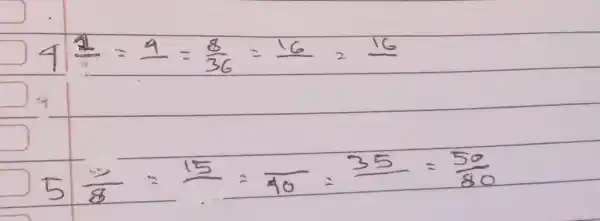 4 2/ = 4/ = 8/36 = 16/ = 16/
5 /8 = 15/ = /40 = 35/ = 50/80